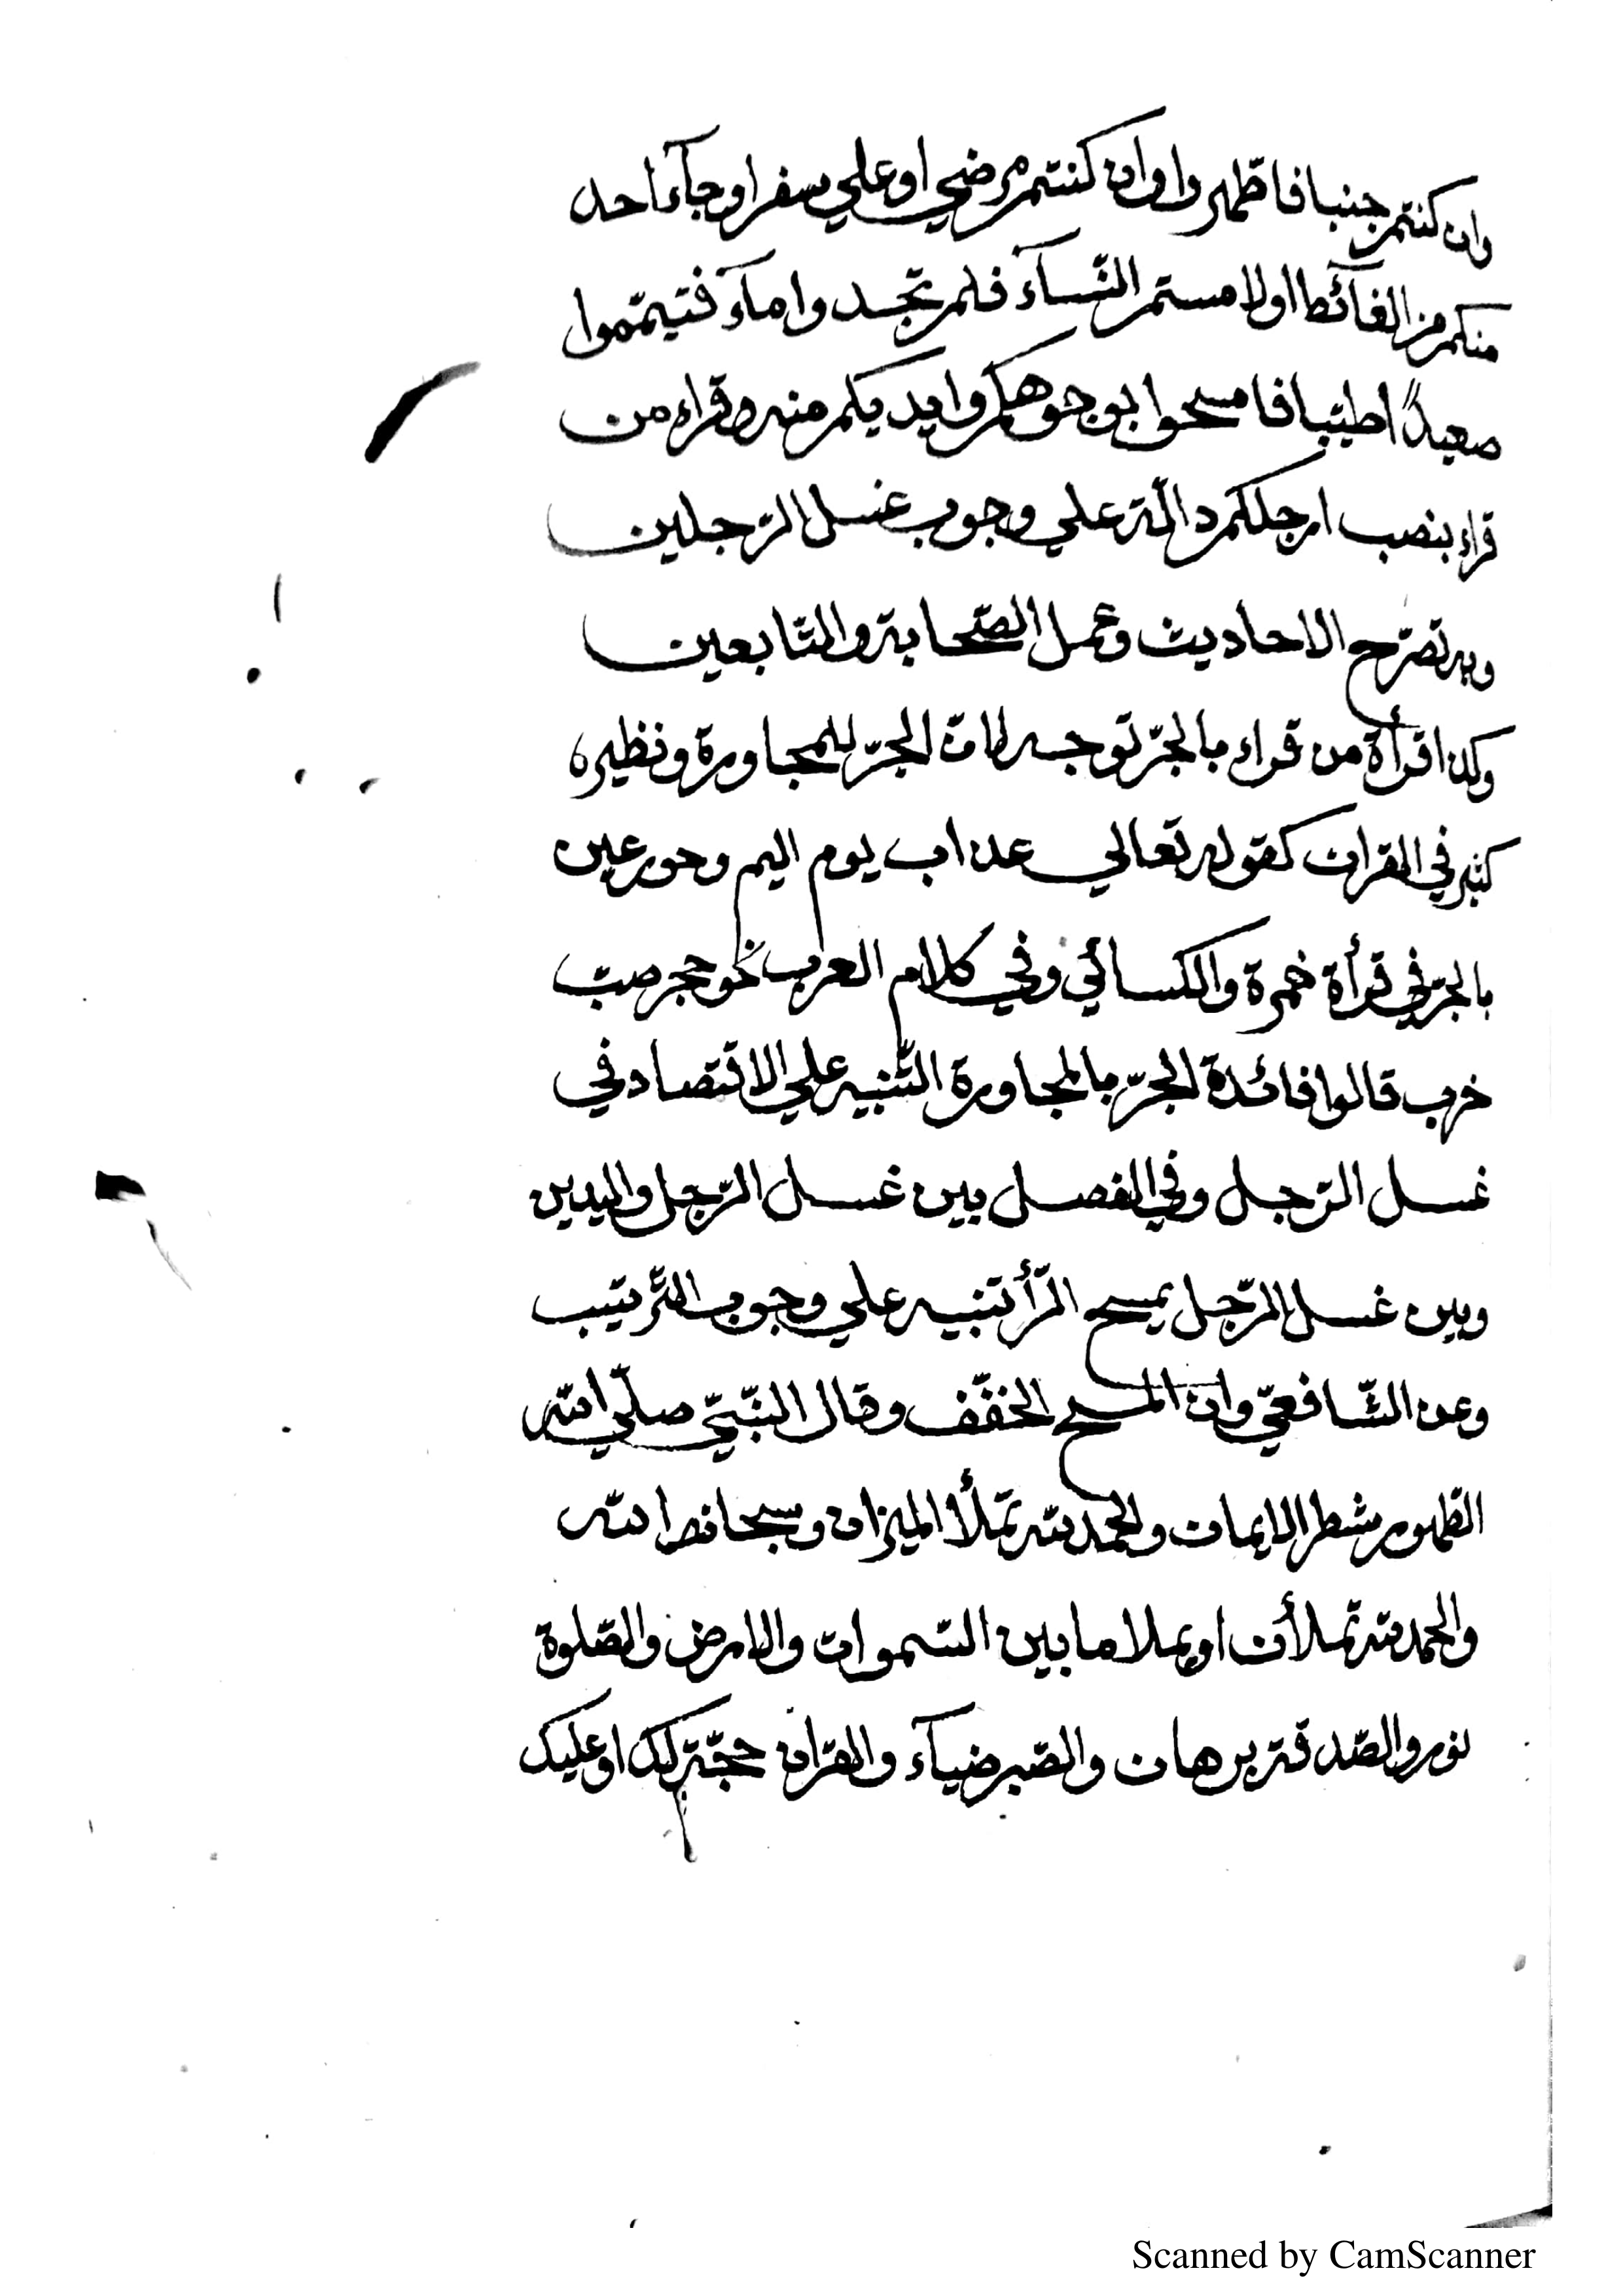 وان كنتم جنبا فاطّهروا وان كنتم مرضي او علي سفر او جآء احد
منكم من الغآئط اولا مستم النّسآء فلم تجدوا مآء فتيمّموا
صعيدًا طيّبا فامسحوا بوجوهكم وايديكم منه وقراء من
قراء بنصب ارجلكم دالّة علي وجوب غسل الرّجلين
وبه تصّرح الاحاديث وعمل الصّحابة والتّابعين
وكذا قرأة من قراء بالجرّ توجه لان الجرّ للمجاورة ونظيره
كثير في القران كقوله تعالي عذاب يوم اليم وحور عين
بالجرّ في قرأة حمزة والكسائي وفي كلام العرب نحو حجر ضبّ
خرب قالوا فائدة الجرّ بالمجاورة التّنبيه علي الاقتصاد في
غسل الرّجل وفي الفصل بين غسل الرّجل واليدين
وبين غسل الرّجل بمسح الرّأ تنبيه علي وجوب التّرتيب
وعن الشّافعيّ وان المسح الخفّف وقال النّبيّ صلّي الله
الطّهور شطر الايمان والحمد لله تملأ الميزان وسبحان الله
والحمد لله تملأن او يملا ما بين السّموات والارض والصّلوة
نور والصّدقة برهان والصّبر ضيآء والقران حجّة لك او عليك
Scanned by CamScanner